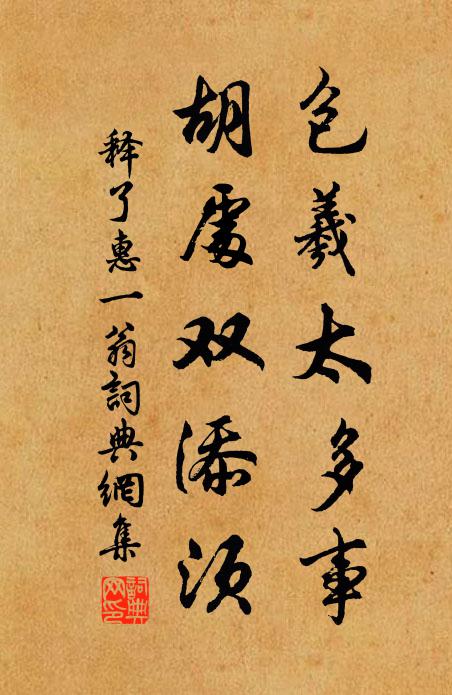 包羲太多事
胡處双添须
释了惠一翁詞典網集
詞典网印